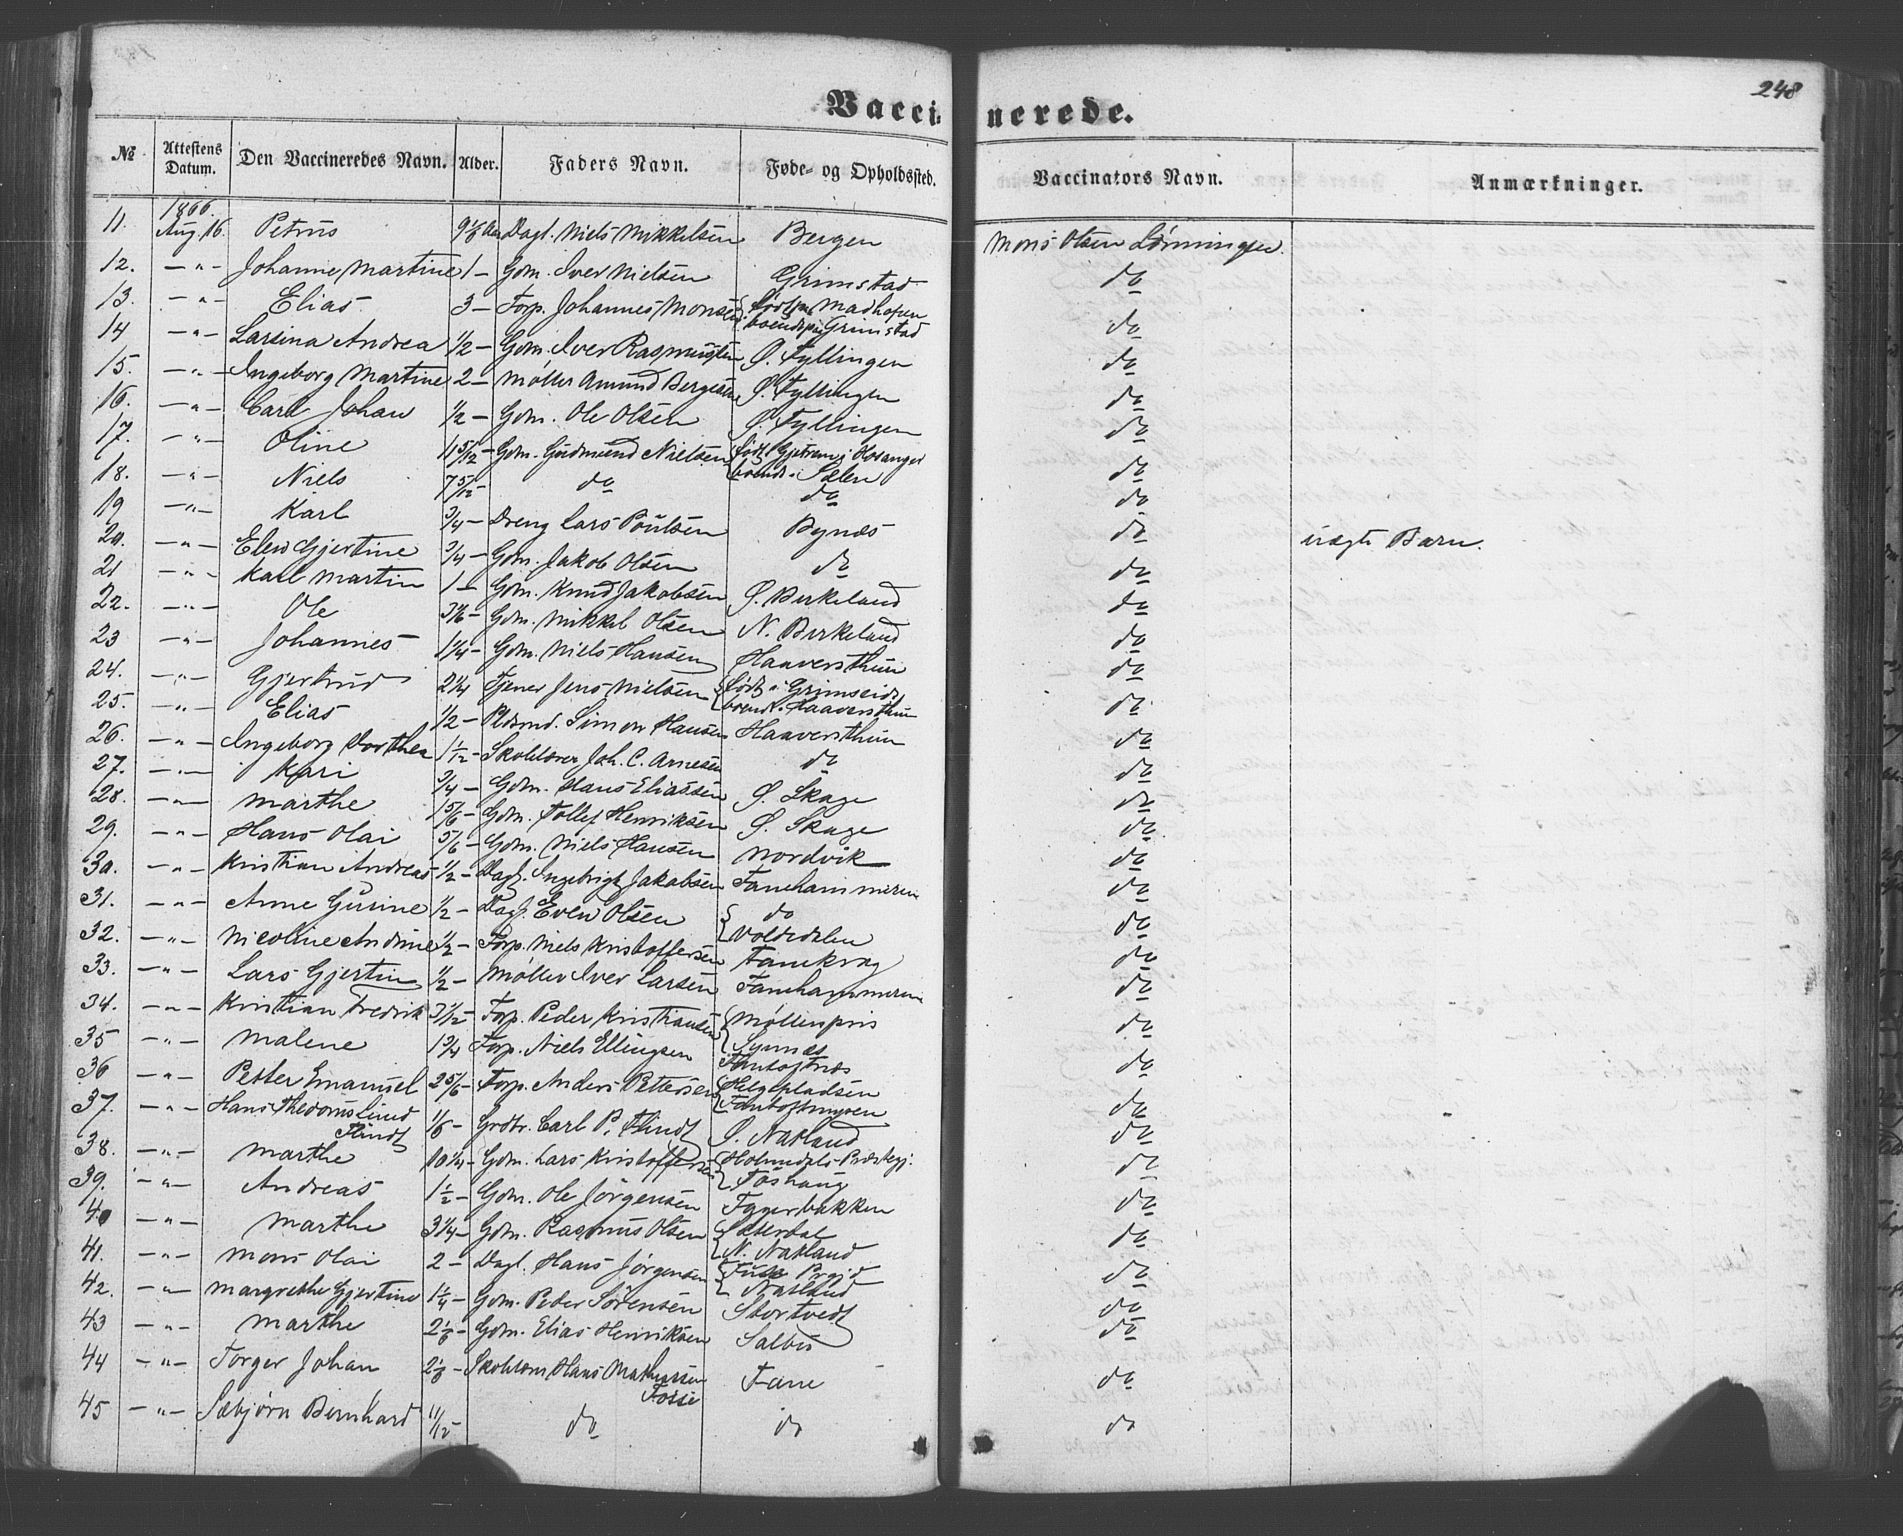 248
Vaccinerede.
№ Attestens Datum. Den Vaccineredes Navn. Alder. Faders Navn. Føde- og Opholdssted. Vaccinators Navn. Anmærkninger.
1866.
11. Aug. 16. Petrus 9 1/6 Aar Dagl. Niels Mikkelsen Bergen Mons Olsen Lønningen.
12. — " — Johanne Martine 1 — Gdm. Iver Nielsen Grimstad do
13. — " — Elias 3 — Forp. Johannes Monsen født paa Madhofen do
boende paa Grimstad
14 — " — Larsina Andrea 1/2 — Gdm. Iver Rasmussen Ø. Fyllingen do
15. — " — Ingeborg Martine 2 — Møller Amund Bergesen Ø. Fyllingen do
16. — " — Carl Johan 1/2 — Gdm. Ole Olsen Ø. Fyllingen do
17. — " — Oline 11 5/12 — Gdm. Gudmund Nielsen født i Hosanger do
boende i Sælen
18. — " — Niels 7 5/12 — do do do
19 — " — Karl 3/4 — Dreng Lars Poulsen Bynæs do uægte Barn.
20. — " — Elen Gjertine 3/4 — Gdm. Jakob Olsen do do
21 — " — Karl Martin 1 — Gdm. Knud Jakobsen Ø. Birkeland do
22. — " — Ole 3 1/6 — Gdm. Mikkel Olsen N. Birkeland do
23 — " — Johannes 1 1/4 — Gdm. Niels Hansen Haaversthun do
24. — " — Gjertrud 2 1/4 Tjener Jens Nielsen født i Grimseid do
boend. Haaversthun
25. — " — Elias 1/2 — Pldsmd. Simon Hansen Haaversthun do
26. — " — Ingeborg Dorthea 1 1/2 — Skolelærer Joh. C. Arnesen do do
27. — " — Kari 3/4 — Gdm. Hans Eliassen Ø. Skage do
28. — " — Marthe 1 5/6 — Gdm. Tollef Henriksen Ø. Skage do
29. — " — Hans Olai 5/6 — Gdm. Niels Hansen Nordvik do
30. — " — Kristian Andreas 1/2 — Dagl. Ingebrigt Jakobsen Fanehammeren do
31. — " — Anne Gurine 1/2 — Dagl. Even Olsen do do
32. — " — Nicoline Andrine 1/2 — Forp. Niels Kristoffersen Fanekrag do
33. — " — Lars Gjertin 1/2 — Møller Iver Larsen Fanehammeren do
34. — " — Kristian Fredrik 3 1/12 — Forp. Peder Kristiansen Møllenpris do
35 — " — Malene 1 3/4 Forp. Niels Ellingsen do
36 — " — Petter Emanuel 2 5/6 — Forp. Anders Pettersen Helgepladsen do
Fantoftmyren
37. — " — Hans Lund 1/6 — Grdbr. Carl P. Flindt Ø. Natland do
Flindt
38. — " — Marthe 10 1/4 — Gdm. Lars Kristoffersen Holmedals Præstegj. do
39. — " — Andreas 1 1/2 — Gdm. Ole Jørgensen do
40 — " — Marthe 3 1/4 — Gdm. Rasmus Olsen Sæterdal do
N. Natland
41. — " — Mons Olai 2 — Dagl. Hans Jørgensen Fuse Prgjd do
Natland
42. — " — Margrethe Gjertine 1 1/4 — Gdm. Peder Sørensen Stortvedt do
43 — " — Marthe 2 1/6 — Gdm. Elias Henriksen Salbu do
44 — " — Torger Johan 2 1/6 — Skolelærer Hans Mathiassen Fane do
Fosse
45 — " — Sæbjørn Bernhard 11/12 — do do do